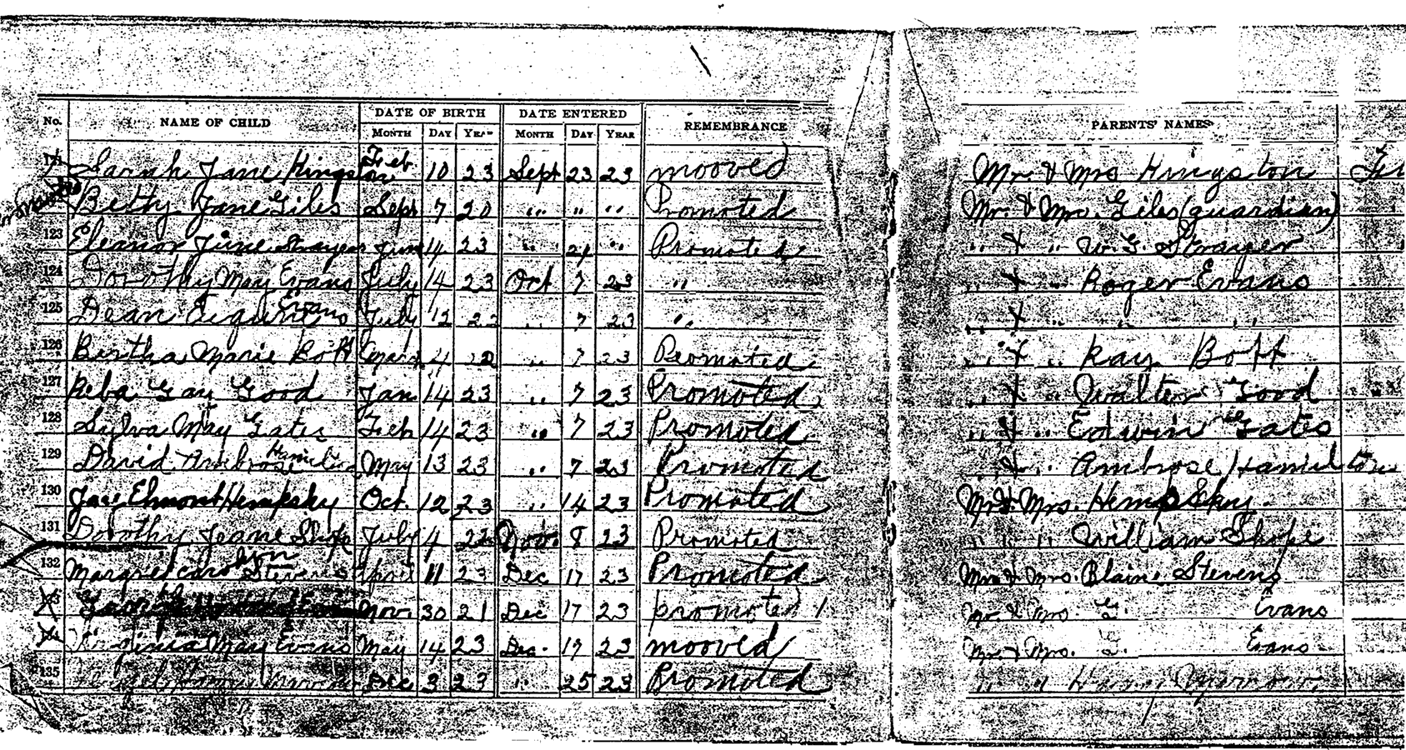 No. NAME OF CHILD DATE OF BIRTH DATE ENTERED REMEMBRANCE PARENTS' NAMES
MONTH DAY YEAR MONTH DAY YEAR
Sarah Jane Kingston Feb 10 23 Sept 23 23 mooved Mr. & Mrs Kingston
Betty Jane Giles Sept 7 20 " " " Promoted Mr. & Mrs. Giles (guardian)
123 Eleanor June Strayer June 14 23 " 24 " Promoted " & " W. G. Strayer
124 Dorothy May Evans July 14 23 Oct 7 23 " " & " Roger Evans
125 Dean Evans July 12 " 7 23 " " & " "
126 Bertha Marie Bott 4 " 7 23 Promoted " & " Ray Bott
127 Reba Gay Good Jan 14 23 " 7 23 Promoted " & " Walter Good
128 Sylva May Gates Feb 14 23 " 7 23 Promoted " & " Edwin Gates
129 David Ambrose Hamilton May 13 23 " 7 23 Promoted " & " Ambrose Hamilton
130 Jay Elmont Hempsky Oct. 12 23 " 14 23 Promoted Mr. & Mrs. Hempsky
131 Dorothy Jeane Shope July 4 22 Nov. 8 23 Promoted " " " William Shope
132 Margret Carolyn Stevens April 11 23 Dec 17 23 Promoted Mr. & Mrs. Blaine Stevens
Nov. 30 21 Dec 17 23 promoted Mr. & Mrs. G. Evans
Virginia May Evans May 14 23 Dec. 17 23 mooved Mr. & Mrs. G. Evans
135 Dec 3 23 " 25 23 Promoted " "